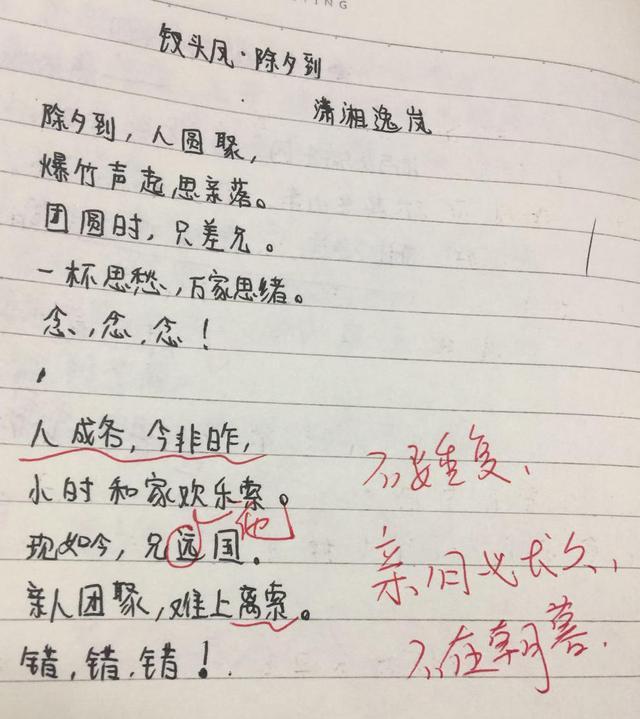 钗头凤·除夕到
潇湘逸岚
除夕到，人圆聚，
爆竹声起思亲落。
团圆时，只差兄。
一杯思愁，万家思绪。
念，念，念！
人成各，今非昨，
小时和家欢乐索。
现如今，兄远国。
他
亲人团聚，难上离索。
错，错，错！
不要重复，
亲情必长久，
不在朝暮.